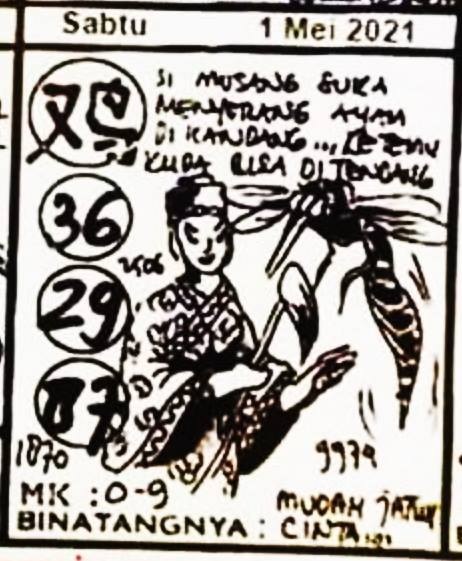 Sabtu 1 Mei 2021
SI MUSANG SUKA
MENYERANG AYAM
DI KANDANG...,
KUDA BISA DI TENDANG
36
2506
29
87
1870
9979
MK : 0-9
MUDAH JATUH
BINATANGNYA : CINTA...